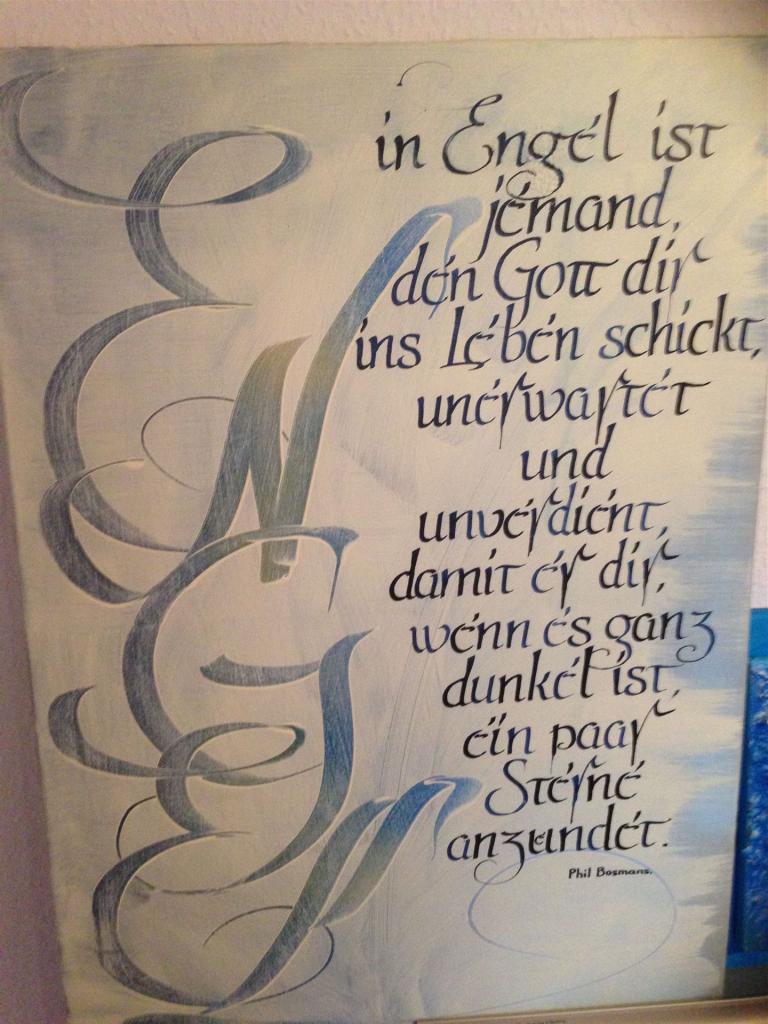 ENGEL
in Engel ist
jemand,
den Gott dir
ins Leben schickt,
unerwartet
und
unverdient,
damit er dir,
wenn es ganz
dunkel ist,
ein paar
Sterne
anzundet.
Phil Bosmans.